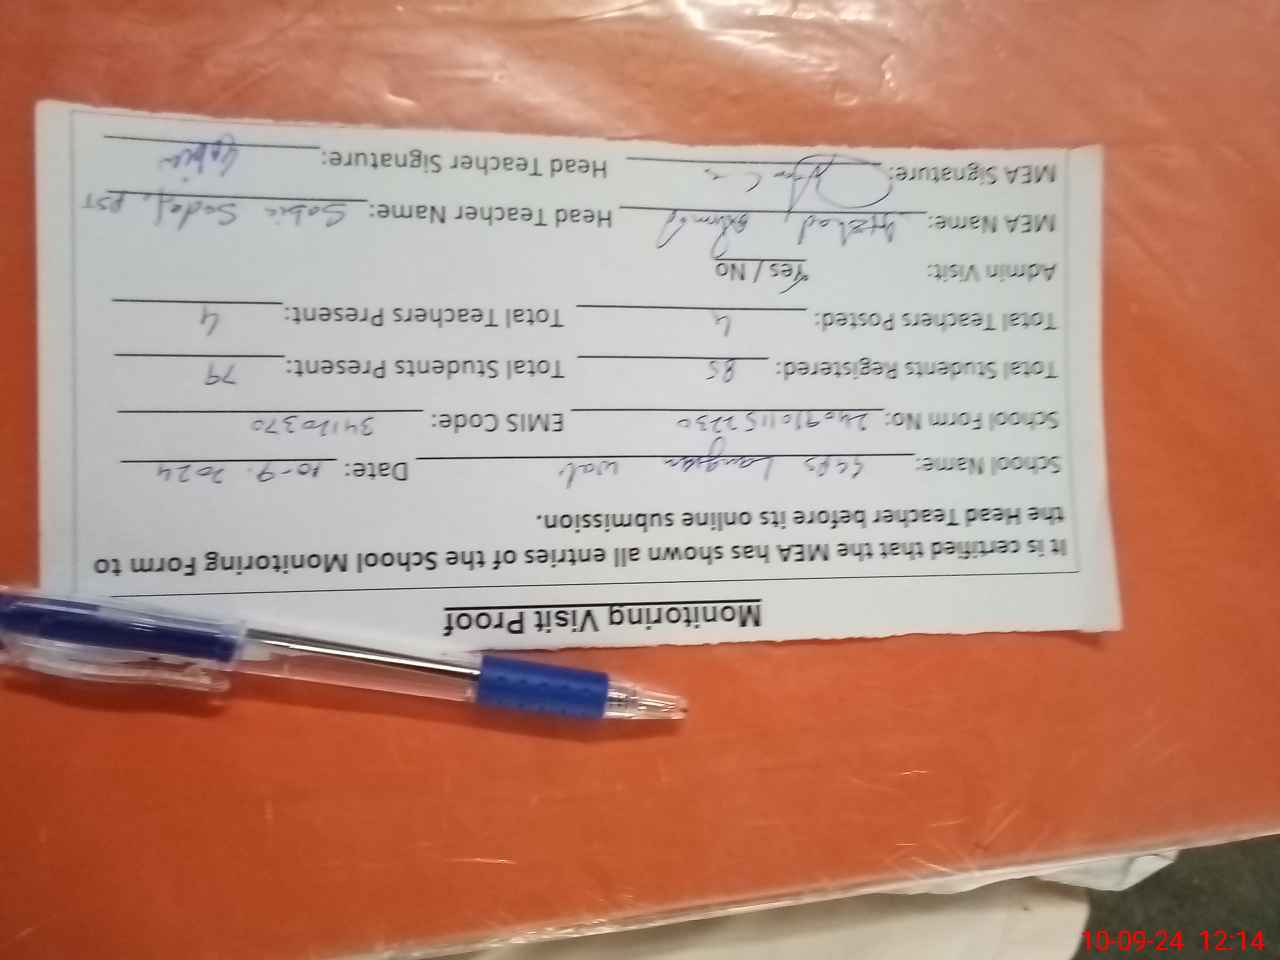 Monitoring Visit Proof
It is certified that the MEA has shown all entries of the School Monitoring Form to
the Head Teacher before its online submission.
School Name: GGPS Langrian wali Date: 10-9-2024
School Form No: EMIS Code: 34120370
Total Students Registered: 85 Total Students Present: 79
Total Teachers Posted: 4 Total Teachers Present: 4
Admin Visit: Yes / No
MEA Name: Ahmed Head Teacher Name: Sobia Sadaf, PST
MEA Signature: Head Teacher Signature: Sobia
10-09-24 12:14